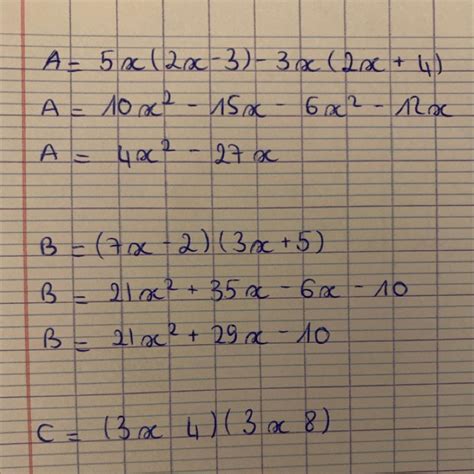 A = 5x(2x-3)-3x(2x+4)
A = 10x² - 15x - 6x² - 12x
A = 4x² - 27x
B = (7x-2)(3x+5)
B = 21x² + 35x - 6x - 10
B = 21x² + 29x - 10
C = (3x 4)(3x 8)